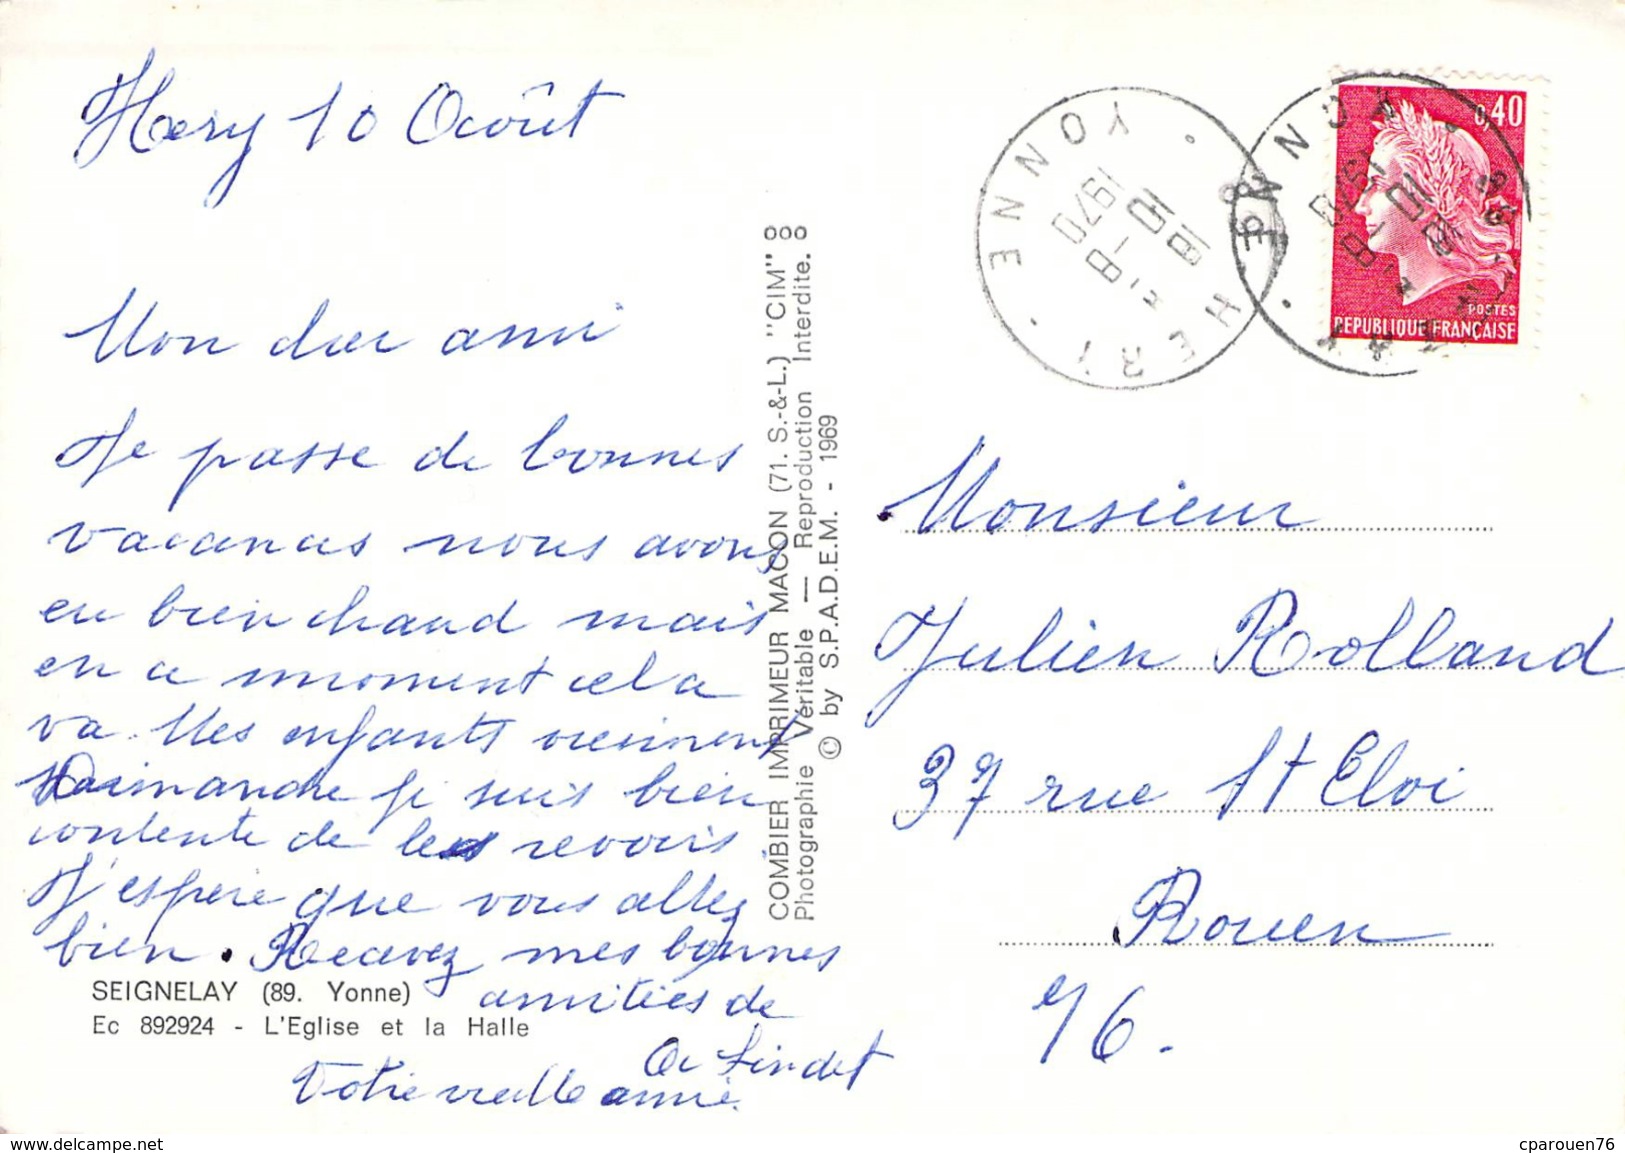 Hery 10 Août
Mon cher ami
Je passe de bonnes
vacances nous avons
eu bien chaud mais
en ce moment cela
va. Mes enfants viennent
Dimanche je suis bien
contente de les revoirs
J'espère que vous allez
bien. Recevez mes bonnes
amitiés de
Votre vieille amie
SEIGNELAY (89. Yonne)
Ec 892924 - L'Eglise et la Halle
COMBIER IMPRIMEUR MACON (71. S.-&-L.) "CIM"
Photographie Véritable — Reproduction Interdite.
© by S.P.A.D.E.M. - 1969
HERY YONNE
18 H
10 - 8
1970
0,40
POSTES
REPUBLIQUE FRANÇAISE
Monsieur
Julien Rolland
37 rue St Eloi
Rouen
76.
www.delcampe.net
cparouen76